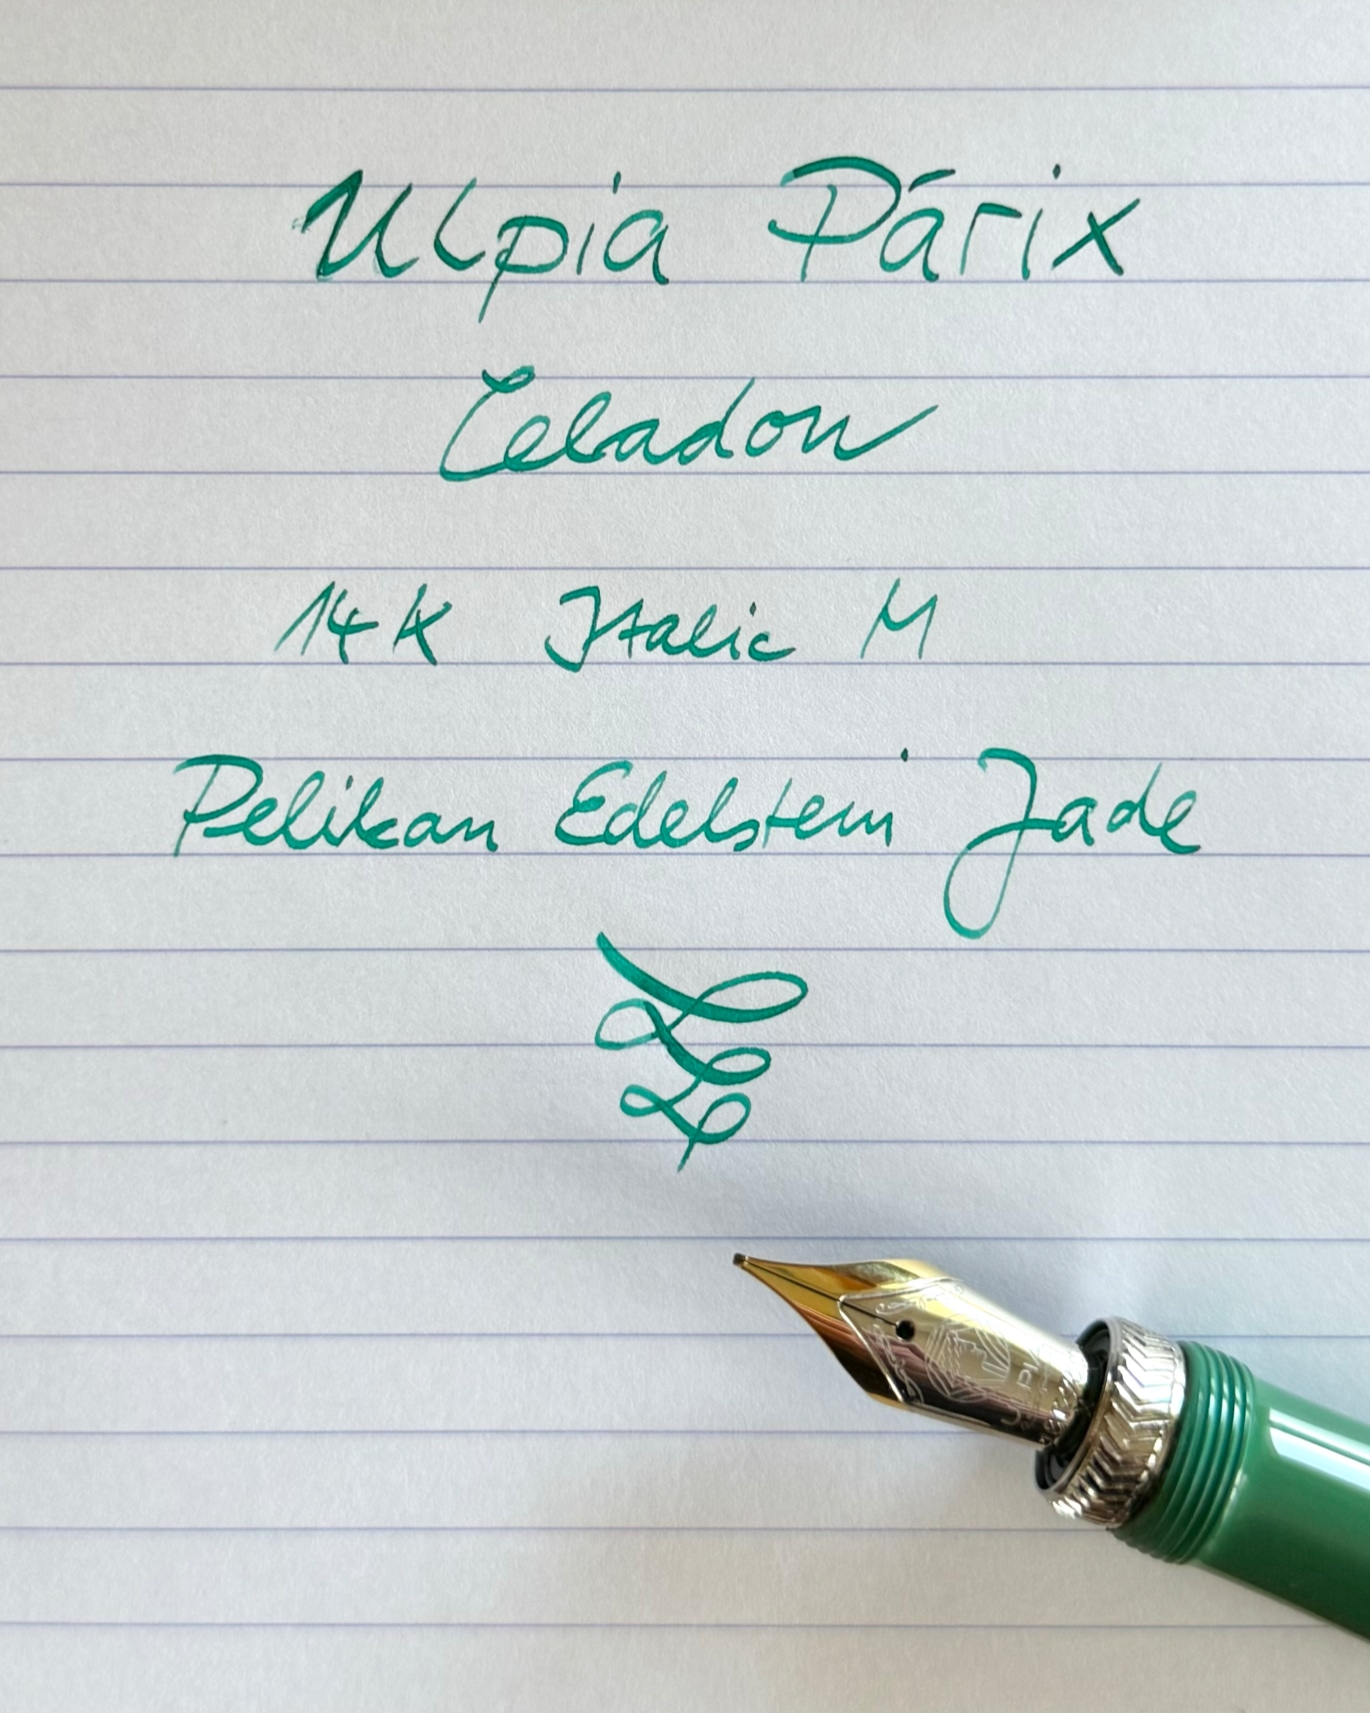 Ulpia Párix
Celadon
14K Italic M
Pelikan Edelstein Jade